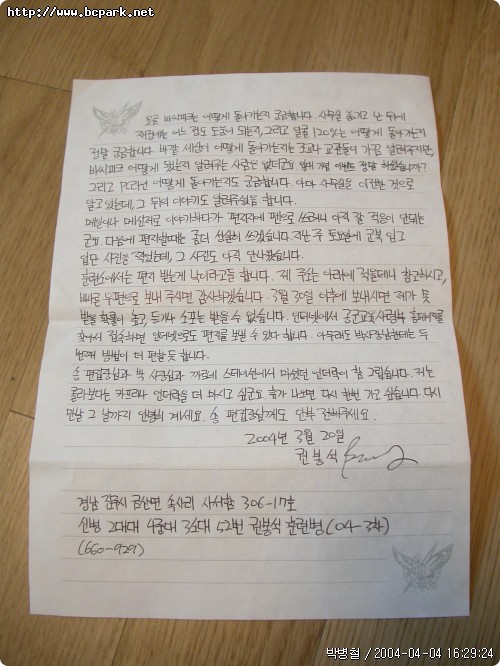 http://www.bcpark.net
요즘 박씨파크는 어떻게 돌아가는지 궁금합니다. 사무실 옮기고 난 뒤에
재정에는 어느 정도 도움이 되는지, 그리고 알콜 120%는 어떻게 돌아가는지
정말 궁금합니다. 바깥 세상이 어떻게 돌아가는지는 조교나 교관들이 가끔 알려주지만,
박씨파크 어떻게 됐는지 알려주는 사람은 없더군요. 이벤트 정말 하셨습니까?
그리고 PC라인 어떻게 돌아가는지도 궁금합니다. 아마 사무실을 이전한 것으로
알고 있는데, 그 뒤의 이야기도 알려주셨음 합니다.
메일이나 메신저로 이야기하다가 편지지에 펜으로 쓰려니 아직 잘 적응이 안되는
군요. 다음에 편지할때는 좀더 성실히 쓰겠습니다. 지난 주 토요일에 군복 입고
입단 사진을 찍었는데, 그 사진도 아직 안나왔습니다.
훈련소에서는 편지 받는게 낙이라고들 합니다. 제 주소는 아래에 적을테니 참고하시고,
빠른 우편으로 보내 주시면 감사하겠습니다. 3월 30일 이후에 보내시면 제가 못
받을 확률이 높고, 등기나 소포는 받을 수 없습니다. 인터넷에서 공군교육사령부 홈페이지를
찾아서 접속하면 인터넷으로도 편지를 보낼 수 있다 합니다. 아무래도 박사장님한테는 두
번째 방법이 더 편할듯 합니다.
송 편집장님과 박 사장님과 까르네 스테이션에서 마셨던 언더락이 참 그립습니다. 저는
콜라보다는 카프리나 언더락을 더 마시고 싶군요. 휴가 나오면 다시 한번 가고 싶습니다. 다시
만날 그 날까지 안녕히 계세요. 송 편집장님께도 안부 전해주세요.
2004년 3월 20일
권봉석
경남 진주시 금산면 속사리 사서함 306-17호
신병 2대대 4중대 3소대 52번 권봉석 훈련병(04-3차)
(660-929)
박병철 / 2004-04-04 16:29:24